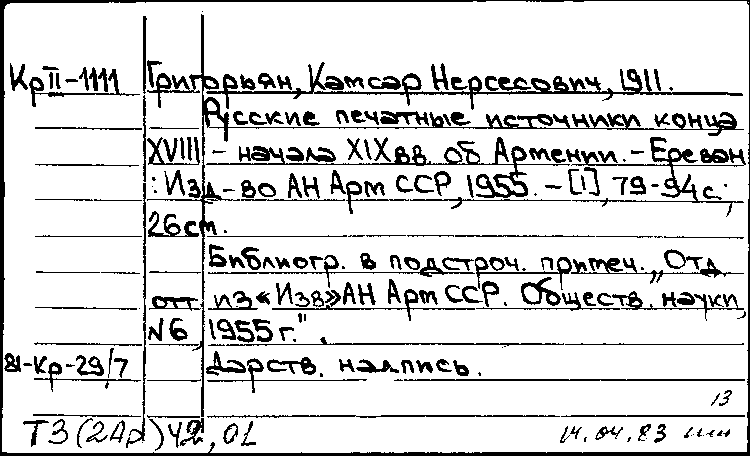 КрII-1111 Григорьян, Камсар Нерсесович, 1911.
Русские печатные источники конца
XVIII - начала XIX вв. об Армении. - Ереван
: Изд-во АН Арм ССР, 1955. - [1], 79-94 с.;
26 см.
Библиогр. в подстроч. примеч. „Отд.
отт. из «Изв» АН Арм ССР. Обществ. науки,
N6, 1955 г.".
81-Кр-29/7 Дарств. надпись.
13
Т3(2Ар)42,0L 14.04.83